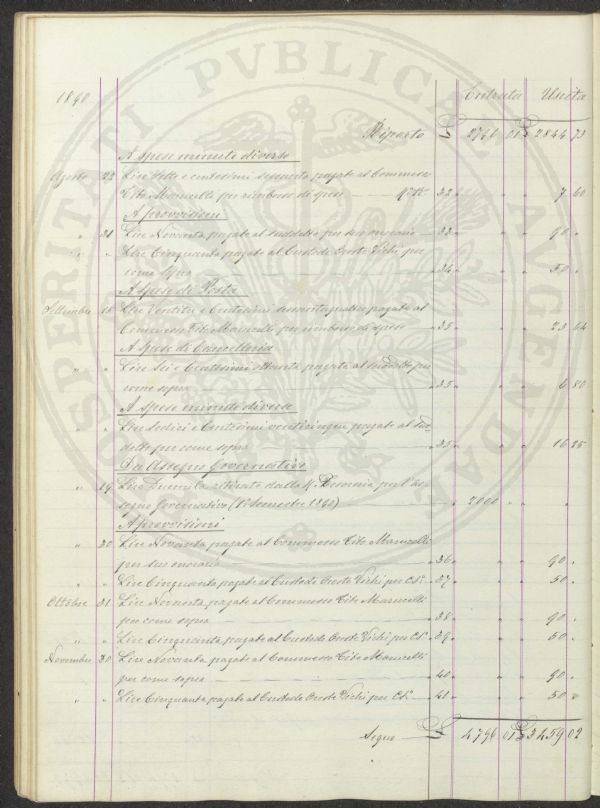 PROSPERITATI PVBLICAE AVGENDAE
Entrata Uscita
Riporto £ 2766 01 £ 2844 73
A spese minute diverse
Agosto 22 Lire sette e centesimi sessanta pagate al Commesso
Tito Marucelli per rimborso di spese 32 " 7 60
A provvisioni
" 31 Lire Novanta pagate al suddetto per suo onorario 33 " 90 "
" " Lire Cinquanta pagate al Custode Oreste Vichi per
come sopra 34 " 50 "
A spese di Posta
Settembre 18 Lire Ventitre e Centesimi sessantaquattro pagate al
Commesso Tito Marucelli per rimborso di spese 35 " 23 64
A Spese di Cancelleria
" " Lire Sei e Centesimi ottanta pagate al suddetto per
come sopra 35 " 6 80
A spese minute diverse
" " Lire sedici e Centesimi venticinque pagate al sud
detto per come sopra 35 " 16 25
Da Assegno Governativo
" 19 Lire Duemila ritirate dalla per l'as
segno governativo (1º Semestre ) 2000 "
A provvisioni
" 30 Lire Novanta pagate al Commesso Tito Marucelli
per suo onorario 36 " 90 "
" " Lire Cinquanta pagate al Custode Oreste Vichi per Cs. 37 " 50 "
Ottobre 31 Lire Novanta pagate al Commesso Tito Marucelli
per come sopra 38 " 90 "
" " Lire Cinquanta pagate al Custode Oreste Vichi per Cs. 39 " 50 "
Novembre 30 Lire Novanta pagate al Commesso Tito Marucelli
per come sopra 40 " 90 "
" " Lire Cinquanta pagate al Custode Oreste Vichi per Cs. 41 " 50 "
Segue £ 4766 01 £ 3459 02